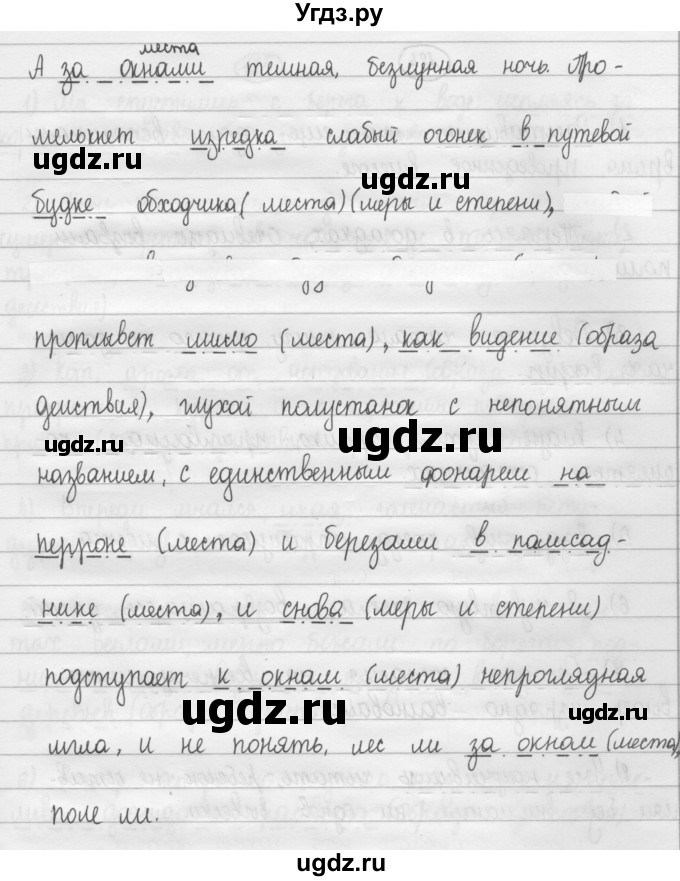 Угдз.ру
места
А за окнами темная, безлунная ночь. Про-
мелькнет изредка слабый огонек в путевой
ugdz.ru
ugdz.ru
будке обходчика (места) (меры и степени),
проплывет мимо (места), как видение (образа
действия), глухой полустанок с непонятным
ugdz.ru
ugdz.ru
названием, с единственным фонарем на
перроне (места) и березами в палисад-
нике (места), и снова (меры и степени)
подступает к окнам (места) непроглядная
ugdz.ru
ugdz.ru
мгла, и не понять, лес ли за окном (места),
поле ли.
ugdz.ru